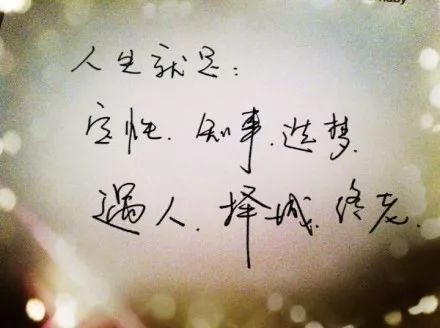 人生就是：
定性、知事、造梦、
遇人、择城、终老.